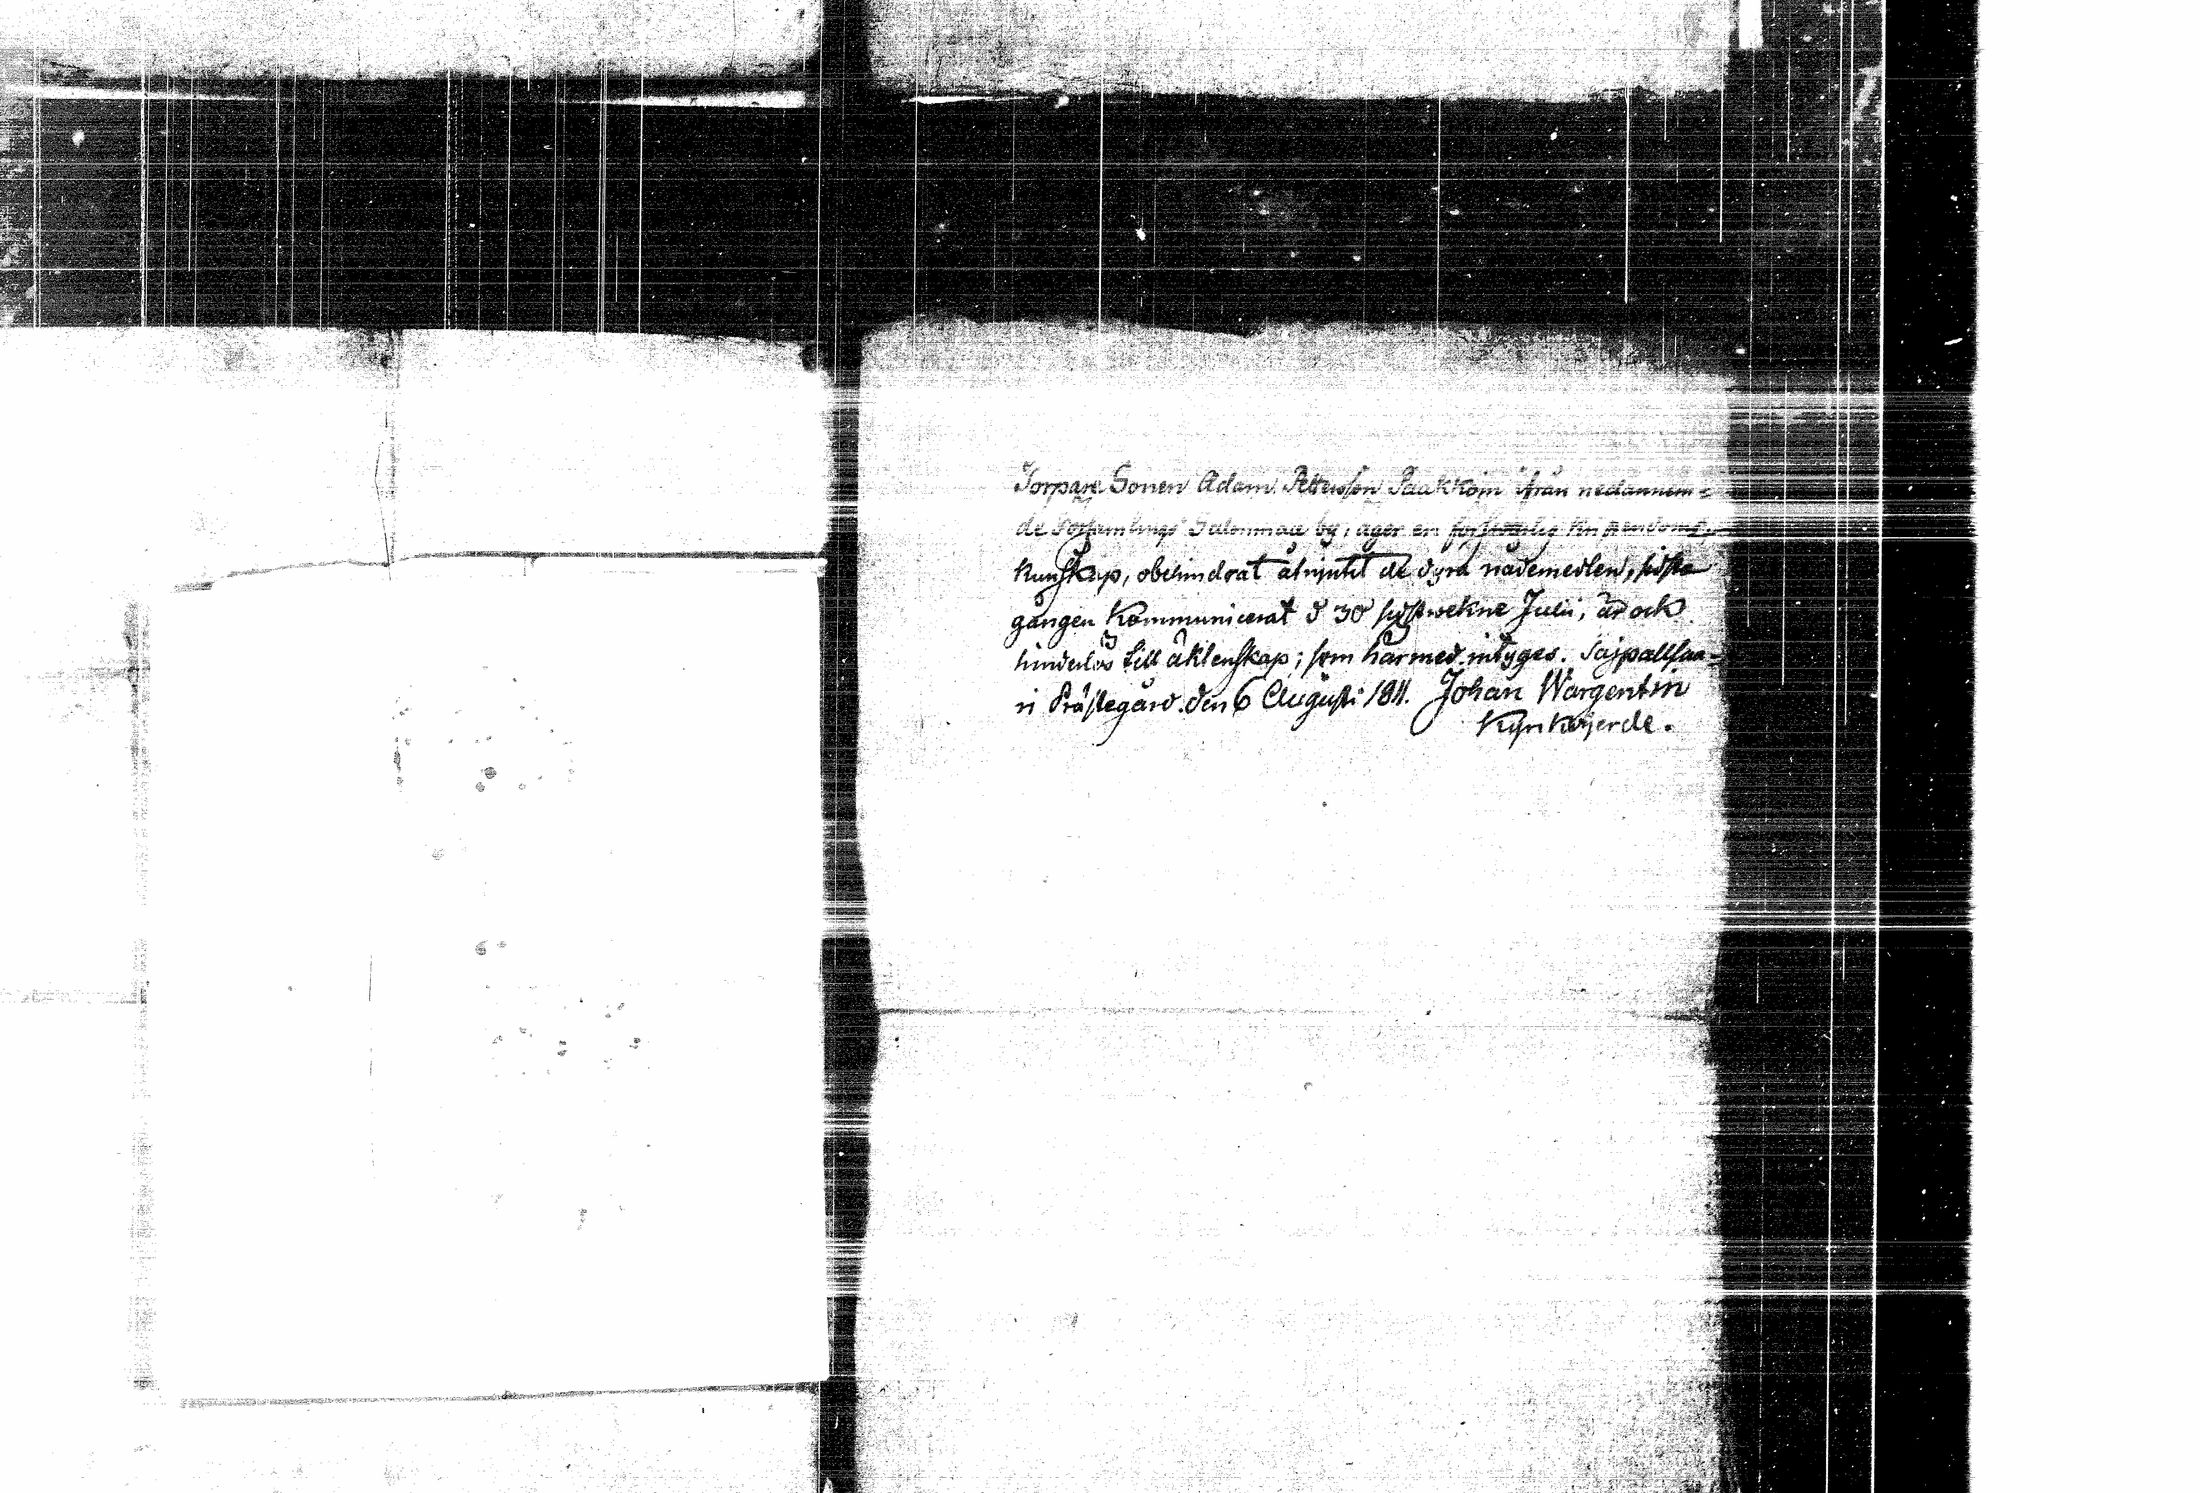 Torpare Sonen Adam Pettersson Paakkoin ifrån nedannem=
de Församlings Salonmaa by, äger en försvarlig Kristendoms-
kunskap, obehindrat åtnjutit de dyra nådemedlen, sidsta
gången kommunicerat d 30 sistwekne Julii, är ock
hinderlös till äktenskap; som härmed intyges. Sajpallsaa-
ri Prästegård. den 6 Augusti 1811. Johan Wargentin
Kyrkoherde.